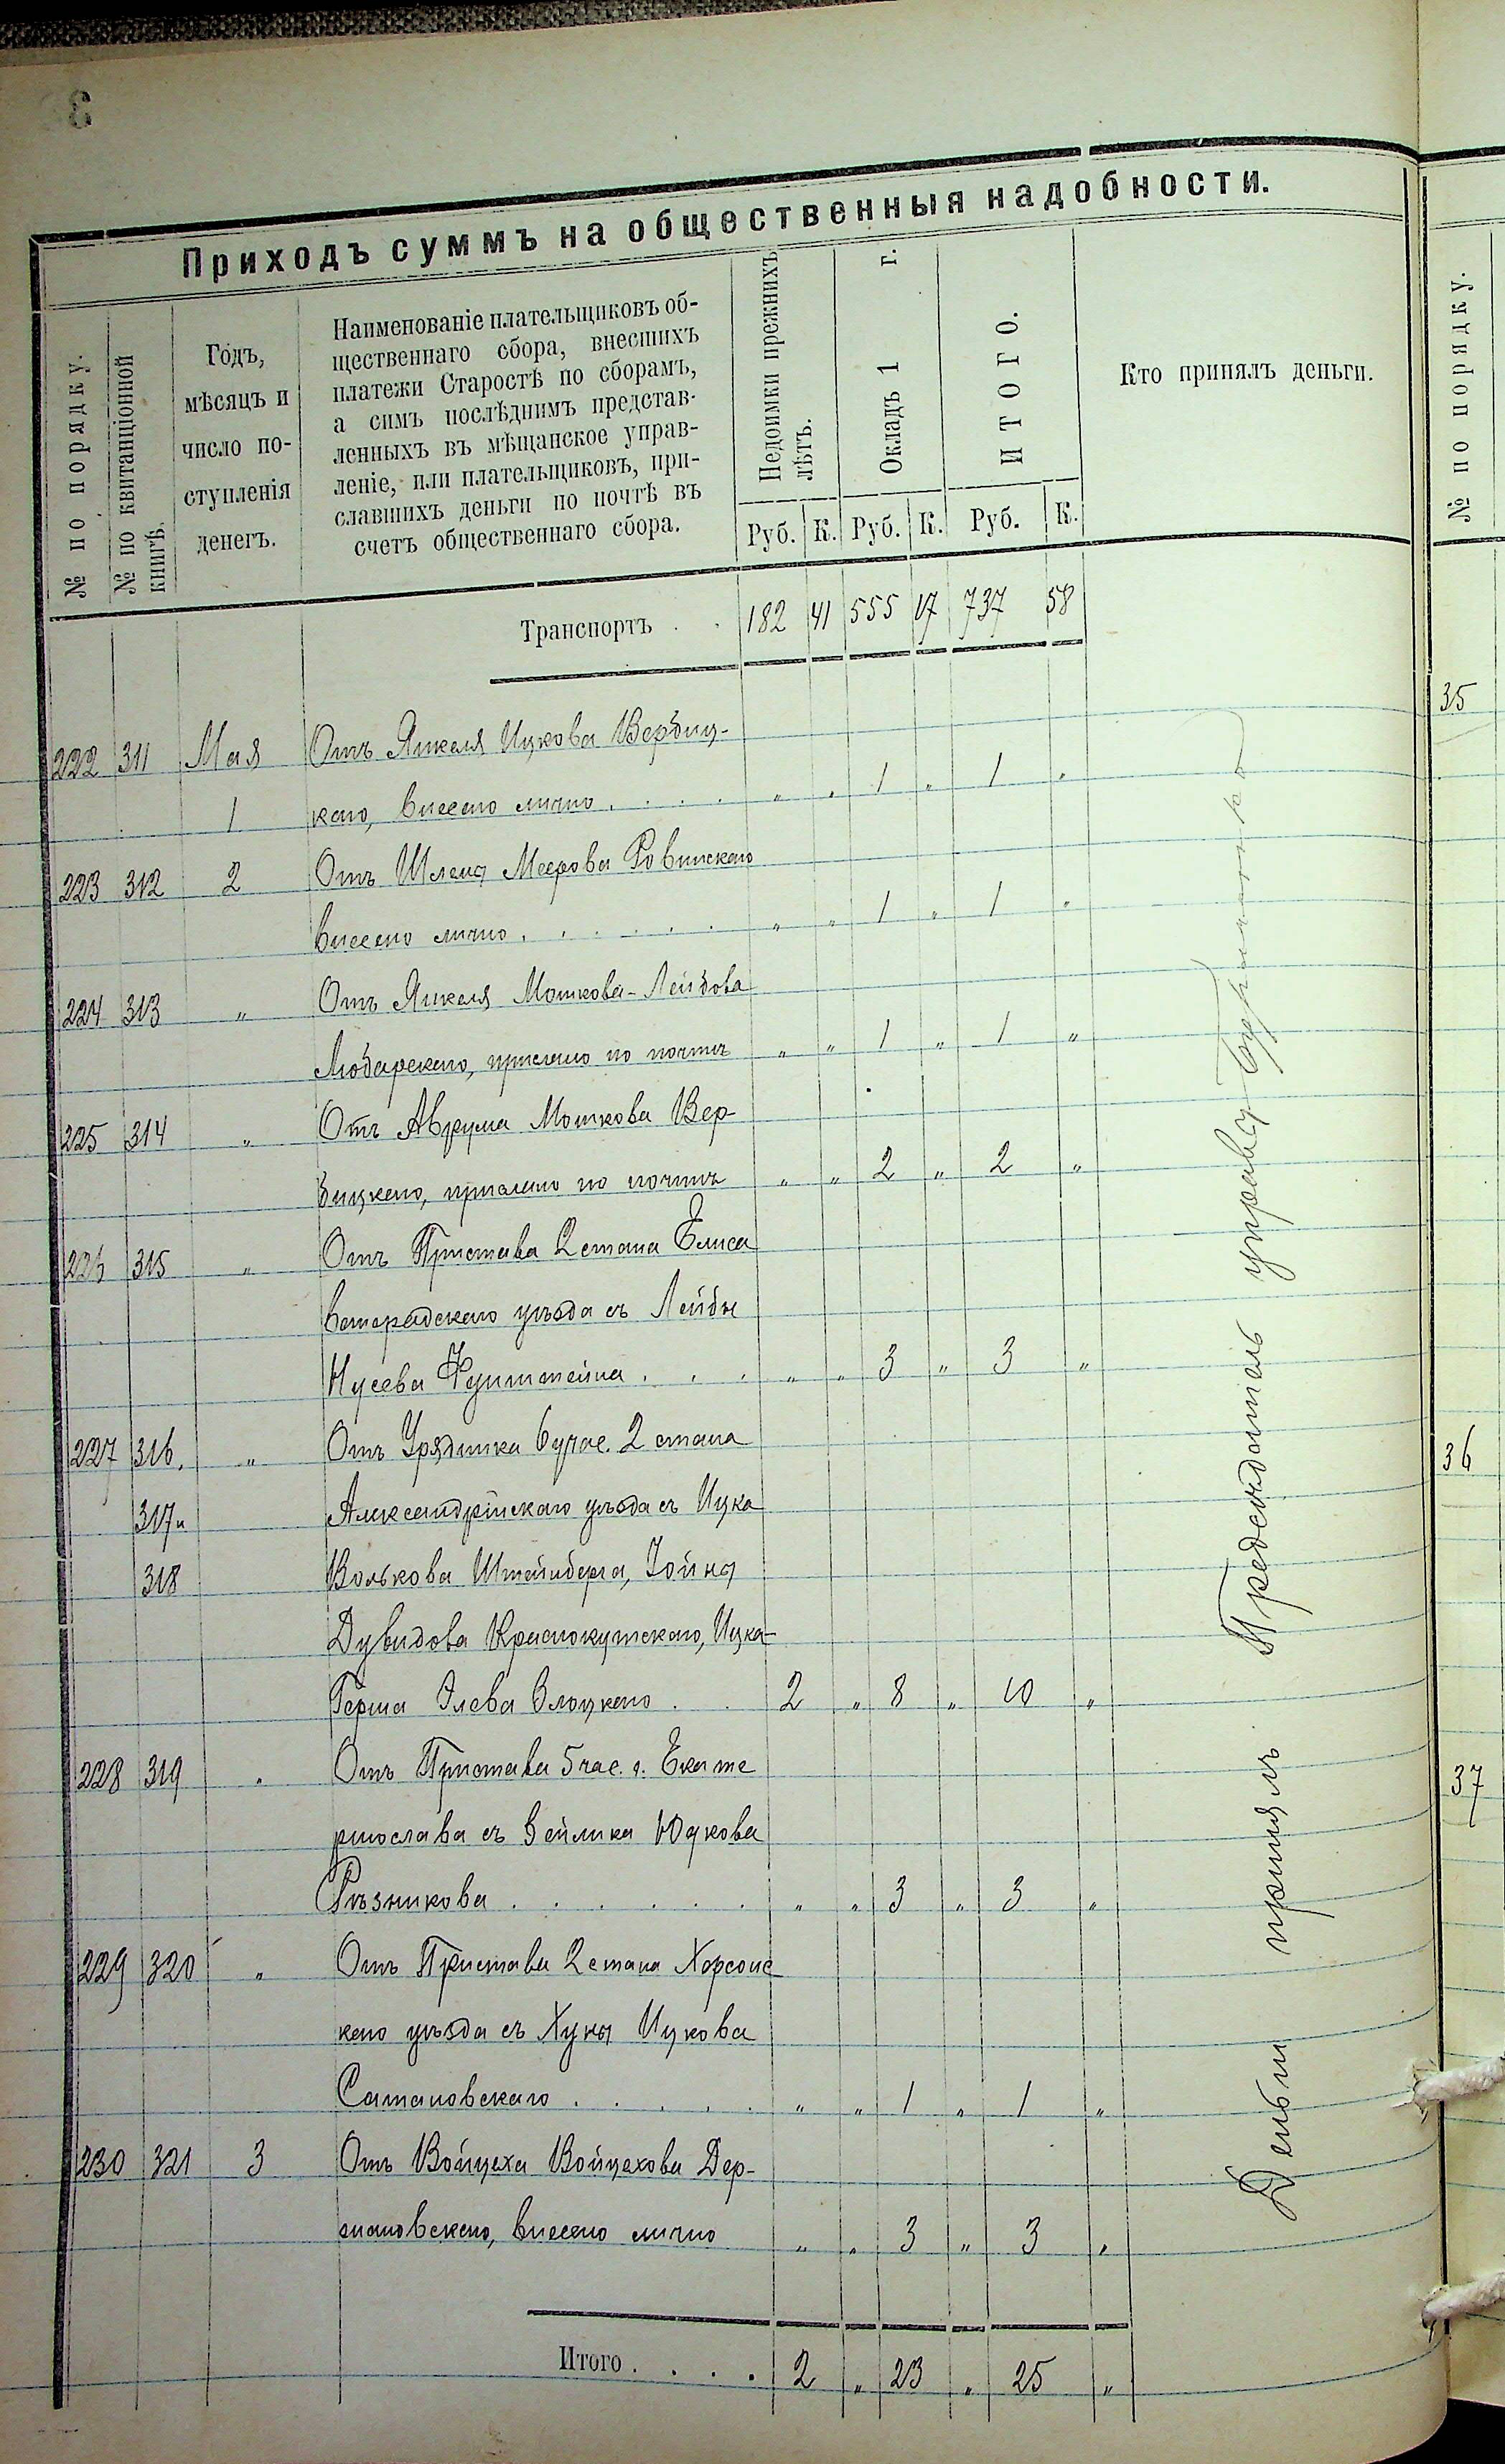 Приходъ суммъ на общественныя надобности.
№ по порядку.
№ по квитанціонной
книгѣ.
Годъ,
мѣсяцъ и
число по-
ступленія
денегъ.
Наименованіе плательщиковъ об-
щественнаго сбора, внесшихъ
платежи Старостѣ по сборамъ,
а симъ послѣднимъ представ-
ленныхъ въ мѣщанское управ-
леніе, или плательщиковъ, при-
славшихъ деньги по почтѣ въ
счетъ общественнаго сбора.
Недоимки прежнихъ
лѣтъ.
Окладъ 1 г.
ИТОГО.
Кто принялъ деньги.
Руб. К. Руб. К. Руб. К.
Транспортъ . . 182 41 555 17 737 58
222 311 Мая Отъ Янкеля Ицкова Вербиц-
1 каго, внесено лично . . . . " " 1 " 1 "
223 312 2 Отъ Шлемы Меерова Ровинскаго
внесено лично . . . . . . " " 1 " 1 "
224 313 " Отъ Янкеля Мошкова-Лейбова
Любарскаго, прислано по почтѣ " " 1 " 1 "
225 314 " Отъ Аврума Мошкова Вер-
бицкаго, прислано по почтѣ " " 2 " 2 "
226 315 " Отъ Пристава 2 стана Елиса
ветградскаго уѣзда съ Лейбы
Нусева . . . " " 3 " 3 "
227 316, " Отъ Урядника 6 учас. 2 стана
317 и Александрійскаго уѣзда съ Ицка
318 Волькова Штейнберга, Іойны
Дувидова Краснокутскаго, Ицка-
Герша Элева Злоцкаго . . 2 " 8 " 10 "
228 319 " Отъ Пристава 5 час. г. Екате
ринослава съ Зейлика Юдкова
Рѣзникова . . . . . . " " 3 " 3 "
229 320 " Отъ Пристава 2 стана Херсонс
каго уѣзда съ Хуны Ицкова
Сатановскаго . . . . . " " 1 " 1 "
230 321 3 Отъ Войцеха Войцехова Дер-
жановскаго, внесено лично " " 3 " 3 "
Итого . . . . 2 " 23 " 25 "
Деньги принялъ Предсѣдатель управы
№ по порядку.
35
36
37